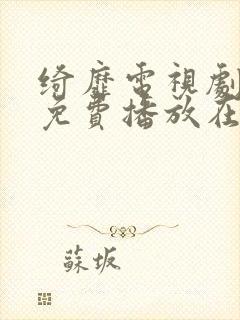 綺靡電視劇
免費播放在
蘇坂